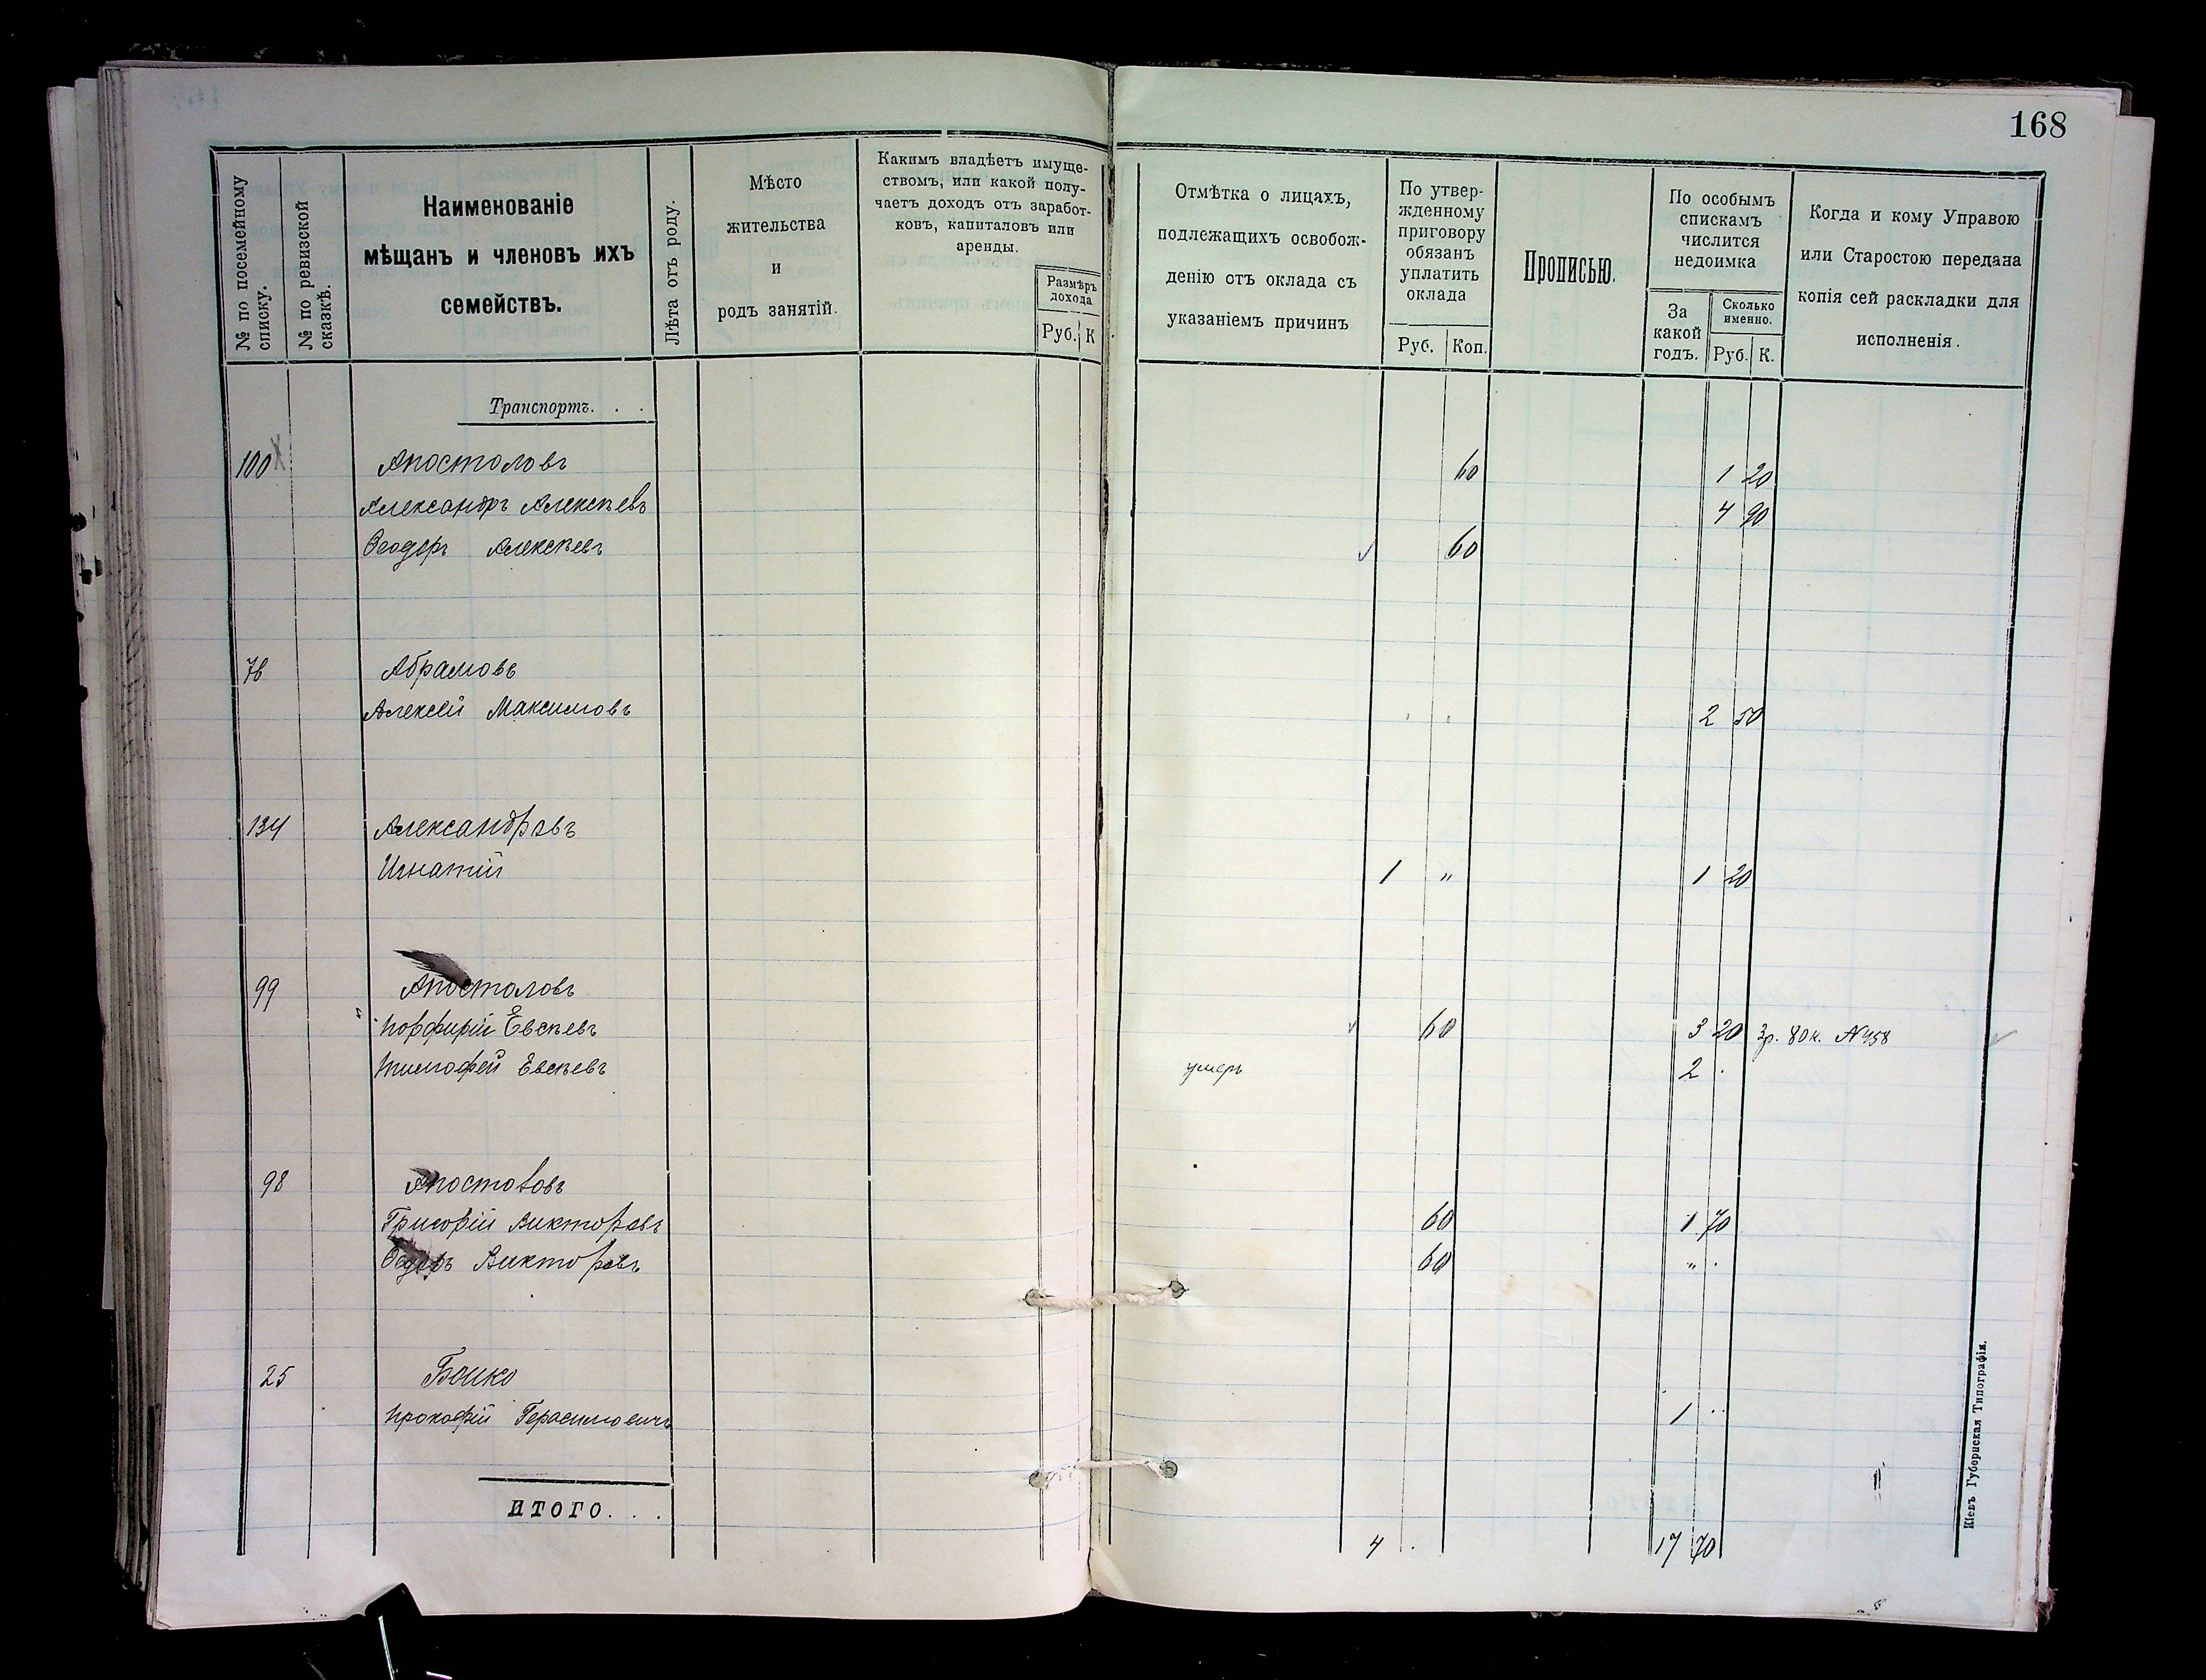 168
№ по посемейному списку.
№ по ревизской сказкѣ.
Наименованіе
мѣщанъ и членовъ ихъ
семействъ.
Лѣта отъ роду.
Мѣсто
жительства
и
родъ занятій.
Какимъ владѣетъ имуще-
ствомъ, или какой полу-
чаетъ доходъ отъ заработ-
ковъ, капиталовъ или
аренды.
Размѣръ
дохода
Руб. К
Отмѣтка о лицахъ,
подлежащихъ освобож-
денію отъ оклада съ
указаніемъ причинъ
По утвер-
жденному
приговору
обязанъ
уплатить
оклада
Руб. Коп.
Прописью.
По особымъ
спискамъ
числится
недоимка
За
какой
годъ.
Сколько
именно.
Руб. К.
Когда и кому Управою
или Старостою передана
копія сей раскладки для
исполненія.
Транспортъ. . .
100 Апостоловъ 60 1 20
Александръ Алексѣевъ 4 90
Ѳеодоръ Алексѣевъ 60
76 Абрамовъ
Алексѣй Максимовъ 2 50
134 Александровъ
Игнатій 1 „ 1 20
99 Апостоловъ
Порфирій Евсѣевъ 60 3 20 3р. 80к. № 458
Тимофей Евсѣевъ умеръ 2 .
98 Апостоловъ
Григорій Викторовъ 60 1 70
Ѳедоръ Викторовъ 60 „ .
25 Бойко
Прокофій Герасимовичъ 1 ..
ИТОГО. . .
4 . 17 70
Кіевъ Губернская Типографія.